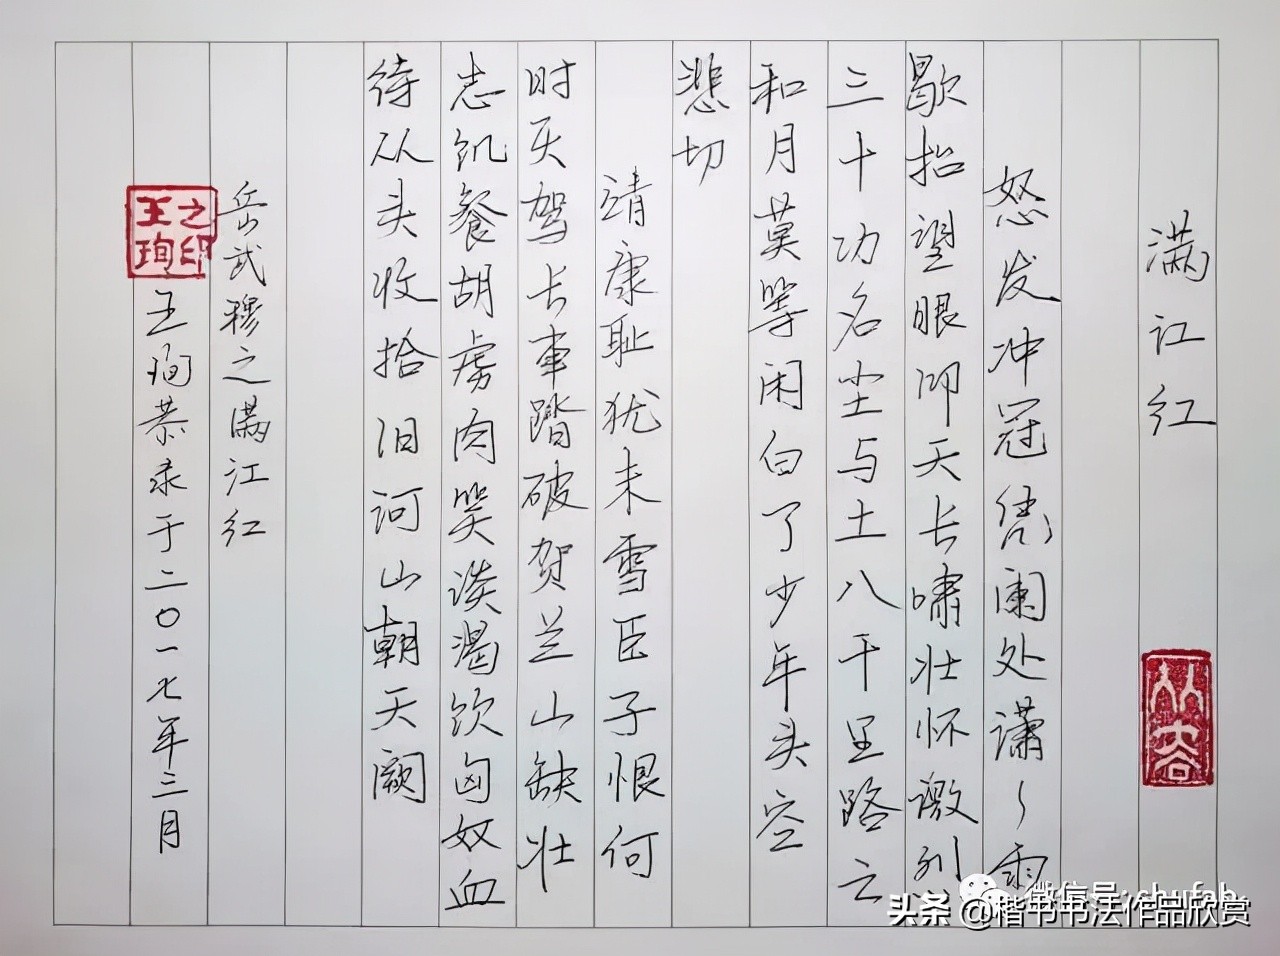 满江红
怒发冲冠凭阑处潇〻雨
歇抬望眼仰天长啸壮怀激烈
三十功名尘与土八千里路云
和月莫等闲白了少年头空
悲切
靖康耻犹未雪臣子恨何
时灭驾长车踏破贺兰山缺壮
志饥餐胡虏肉笑谈渴饮匈奴血
待从头收拾旧河山朝天阙
岳武穆之满江红
王珣恭录于二〇一七年三月
王珣之印
头条 @楷书书法作品欣赏